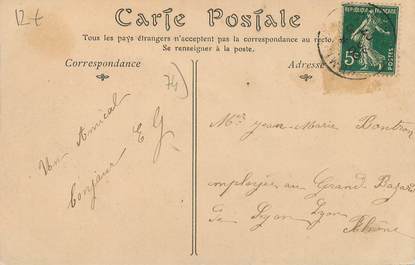 12 €
Carte Postale
Tous les pays étrangers n'acceptent pas la correspondance au recto.
Se renseigner à la poste.
Correspondance
Adresse
REPUBLIQUE FRANÇAISE
5c
POSTES
74)
Un Amical
bonjour E G
Jean-Marie Pontron
employée au Grand-Bazar
de Lyon Lyon
Rhône